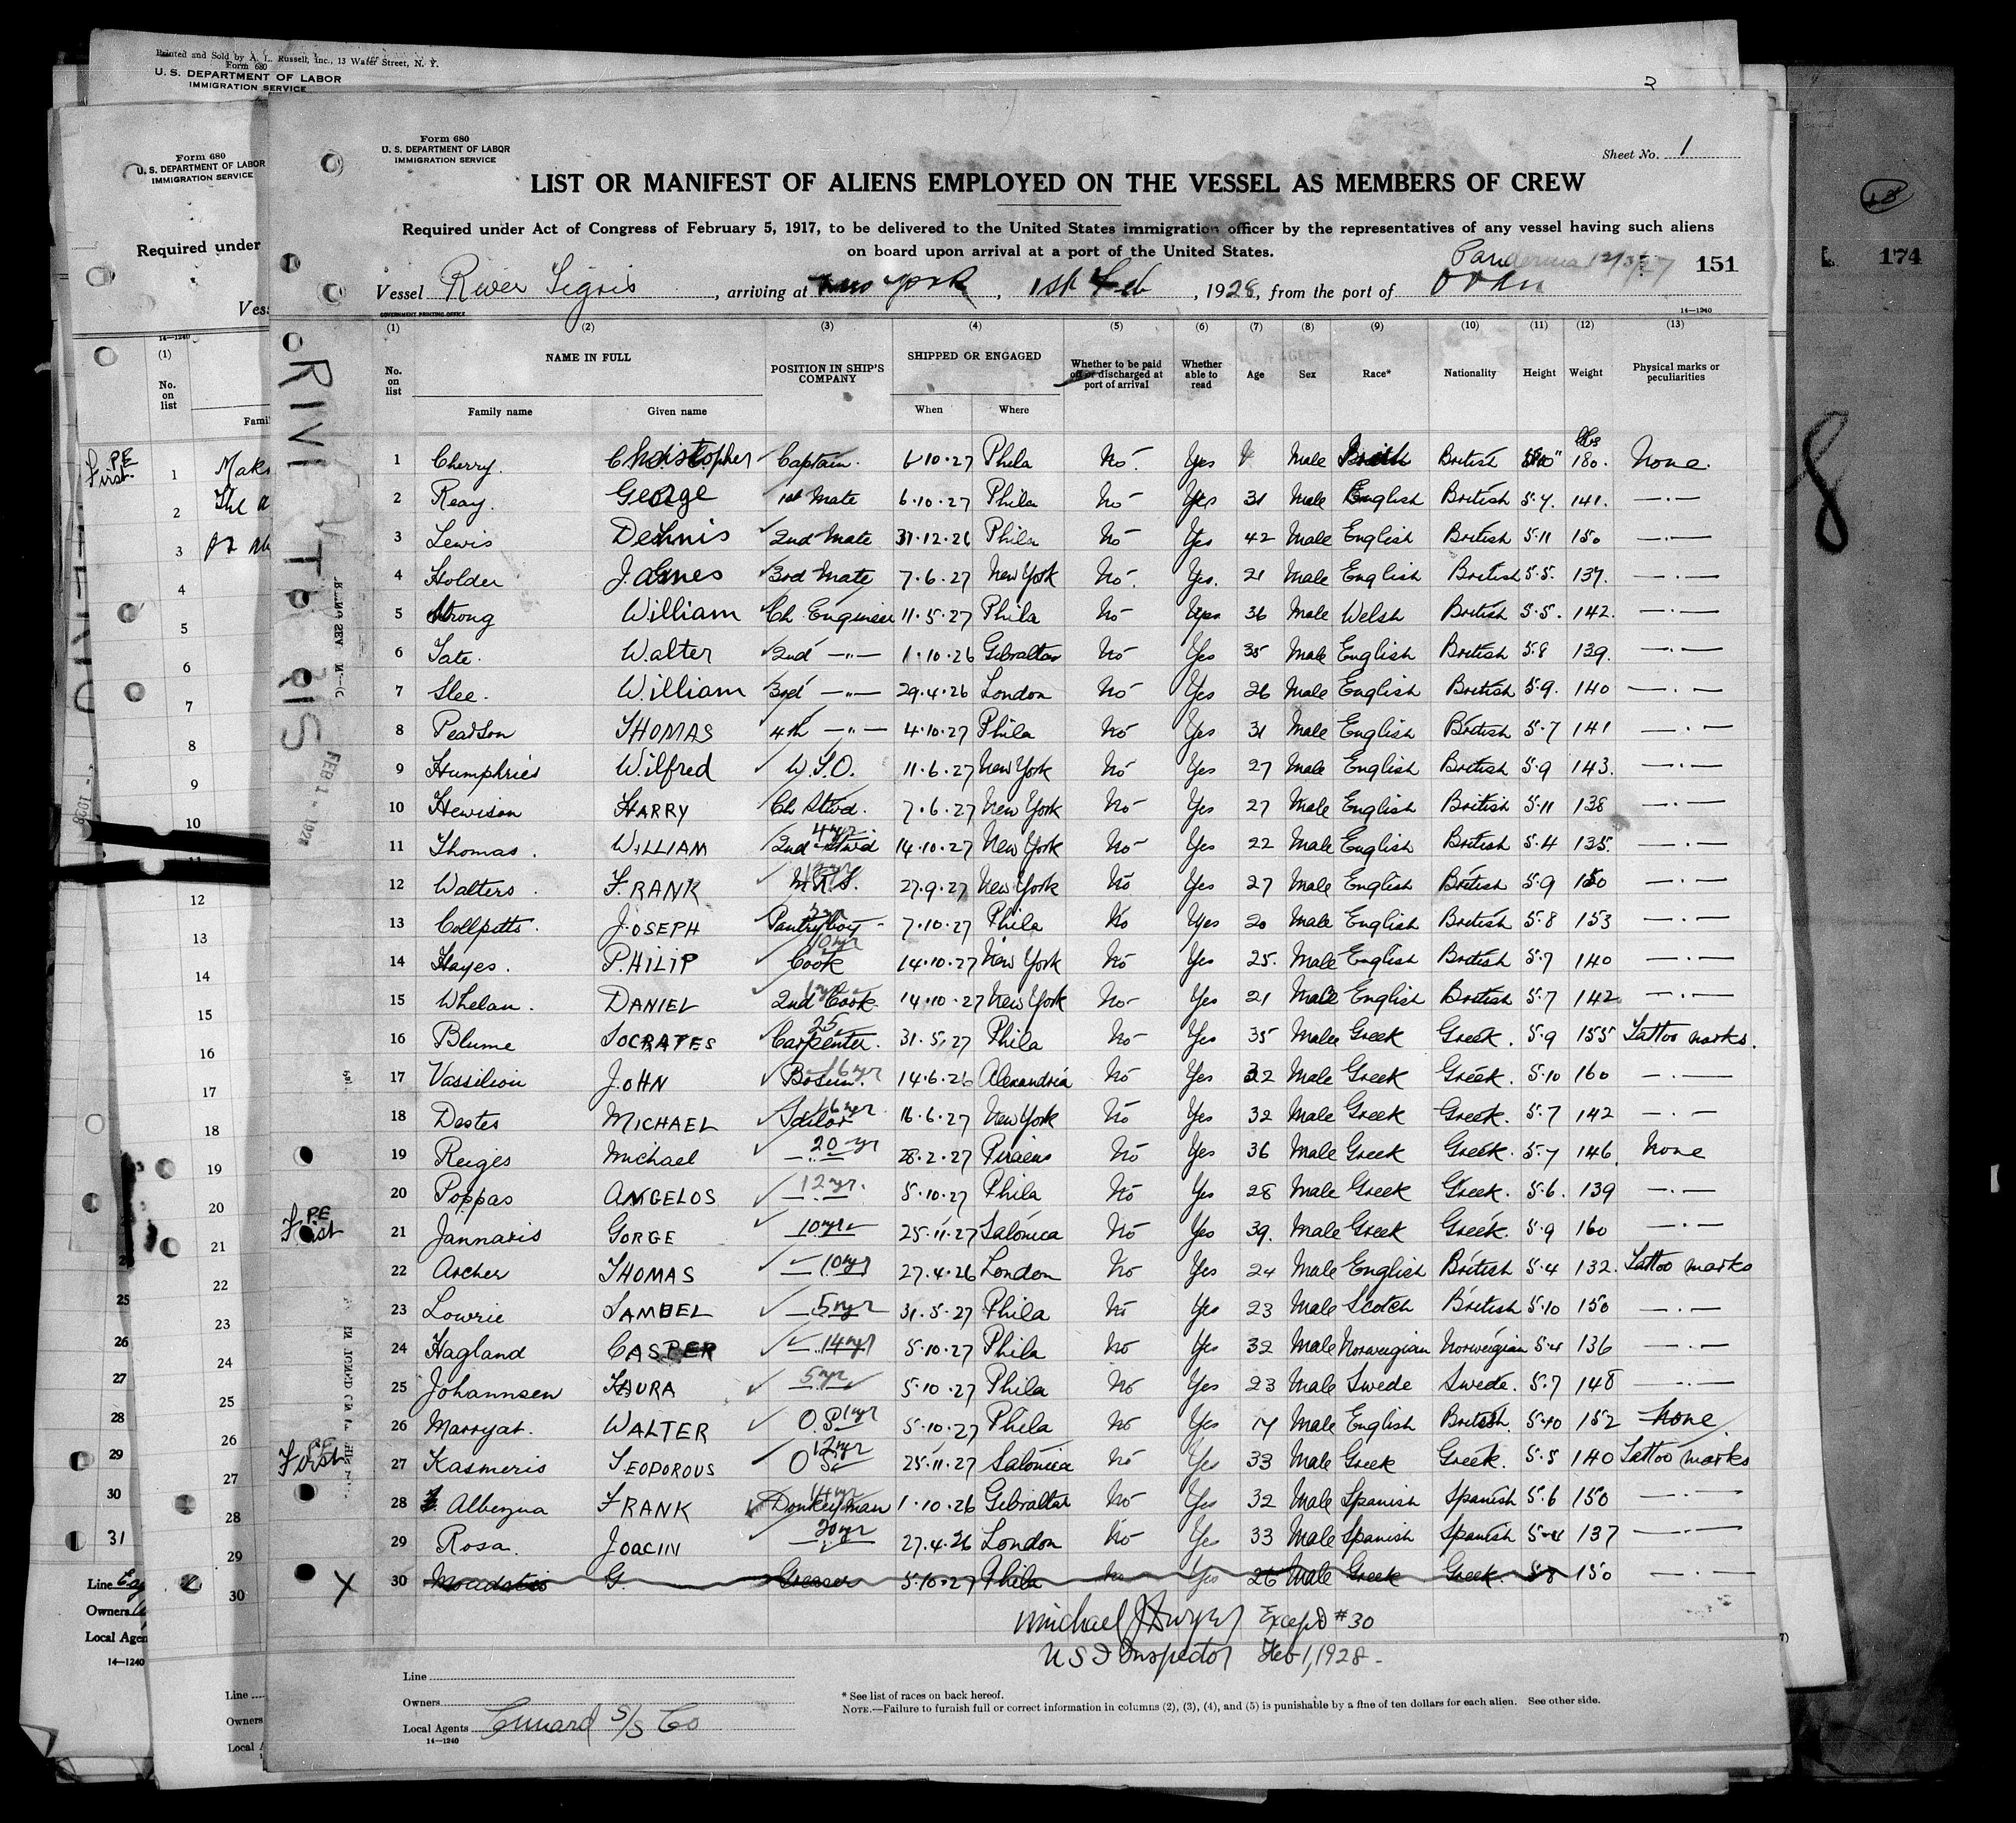 Printed and Sold by A. L. Russell, Inc., 13 Water Street, N. Y.
Form 680
U. S. DEPARTMENT OF LABOR
IMMIGRATION SERVICE
Form 680
U. S. DEPARTMENT OF LABOR
IMMIGRATION SERVICE
Required under
Form 680
U. S. DEPARTMENT OF LABOR
IMMIGRATION SERVICE
Sheet No. 1
LIST OR MANIFEST OF ALIENS EMPLOYED ON THE VESSEL AS MEMBERS OF CREW
Required under Act of Congress of February 5, 1917, to be delivered to the United States immigration officer by the representatives of any vessel having such aliens
on board upon arrival at a port of the United States.
151
174
Vessel River Tigris, arriving at New York, 1st Feb, 1928, from the port of Oran
GOVERNMENT PRINTING OFFICE
14—1240
(1) (2) (3) (4) (5) (6) (7) (8) (9) (10) (11) (12) (13)
No. on list NAME IN FULL POSITION IN SHIP'S COMPANY SHIPPED OR ENGAGED Whether to be paid off or discharged at port of arrival Whether able to read Age Sex Race* Nationality Height Weight Physical marks or peculiarities
Family name Given name When Where
1 Cherry. Christopher Captain. 6·10·27 Phila No. Yes Male British British 180. None.
2 Reay. George 1st Mate 6·10·27 Phila No Yes 31 Male English British 5·7. 141. —·—
3 Lewis Dennis 2nd Mate 31·12·26 Phila No Yes 42 Male English British 5·11 150 —·—
4 Holder James 3rd Mate 7·6·27 New York No. Yes. 21 Male English British 5·5. 137. —·—
5 Strong William Ch. Engineer 11·5·27 Phila No Yes 36 Male Welsh British 5·5. 142. —·—
6 Tate. Walter 2nd —"— 1·10·26 Gibraltar No Yes 35 Male English British 5·8 139. —·—
7 Slee. William 3rd —"— 29·4·26 London No Yes 26 Male English British 5·9. 140 —·—
8 Pearson THOMAS 4th —"— 4·10·27 Phila No Yes 31 Male English British 5·7 141 —·—
9 Humphries Wilfred W.T.O. 11·6·27 New York No Yes 27 Male English British 5·9 143. —·—
10 Hewison HARRY Ch Stwd. 7·6·27 New York No Yes 27 Male English British 5·11 138 —·—
11 Thomas. WILLIAM 2nd Stwd 4 yr. 14·10·27 New York No Yes 22 Male English British 5·4 135. —·—
12 Walters. FRANK M.R.S. 27·9·27 New York No Yes 27 Male English British 5·9 150 —·—
13 Collpitts. JOSEPH Pantryboy 7·10·27 Phila No Yes 20 Male English British 5·8 153 —·—
14 Hayes. PHILIP Cook 10 yr 14·10·27 New York No Yes 25. Male English British 5·7 140 —·—
15 Whelan. DANIEL 2nd Cook. 14·10·27 New York No Yes 21 Male English British 5·7 142. —·—
16 Blume SOCRATES Carpenter. 25 31·5·27 Phila No Yes 35 Male Greek Greek. 5·9 155 Tattoo marks.
17 Vassiliou JOHN Bosun. 16 yr 14·6·26 Alexandria No Yes 32 Male Greek Greek. 5·10 160 —·—
18 Destes MICHAEL Sailor 16 yr. 16·6·27 New York No Yes 32 Male Greek Greek. 5·7 142 —·—
19 Reiges Michael —"— 20 yr 28·2·27 Piraeus No Yes 36 Male Greek Greek. 5·7 146. None
20 Poppas ANGELOS —"— 12 yr. 5·10·27 Phila No Yes 28 Male Greek Greek. 5·6. 139 —·—
21 Jannaris GORGE 10 yr 25·11·27 Salonica No Yes 39. Male Greek Greek. 5·9 160 —·—
22 Archer THOMAS 10 yr 27·4·26 London No Yes 24 Male English British 5·4 132. Tattoo marks
23 Lowrie SAMUEL 5 yr 31·5·27 Phila No Yes 23 Male Scotch British 5·10 150 —·—
24 Hagland CASPER 14 yr 5·10·27 Phila No Yes 32 Male Norweigian Norweigian 5·4 136 —·—
25 Johannsen 5 yr 5·10·27 Phila No Yes 23 Male Swede Swede. 5·7 148 —·—
26 Marryat. WALTER O.S. 1 yr 5·10·27 Phila No Yes 17 Male English British. 5·10 152 None
27 Kasmeris TEOPOROUS O.S. 12 yr 25·11·27 Salonica No Yes 33 Male Greek Greek. 5·5 140 Tattoo marks
28 FRANK Donkeyman 14 yr 1·10·26 Gibraltar No Yes 32 Male Spanish Spanish 5·6 150 —·—
29 Rosa. JOACIN 20 yr 27·4·26 London No Yes 33 Male Spanish Spanish 5·4 137 —·—
30 G. Greaser 5·10·27 Phila No Yes 26 Male Greek Greek. 5·8 150 —·—
Michael J Dwyer Except #30
U S I Inspector Feb 1, 1928.
Line
Owners
Local Agents Cunard S/S Co
14—1240
* See list of races on back hereof.
NOTE.—Failure to furnish full or correct information in columns (2), (3), (4), and (5) is punishable by a fine of ten dollars for each alien. See other side.